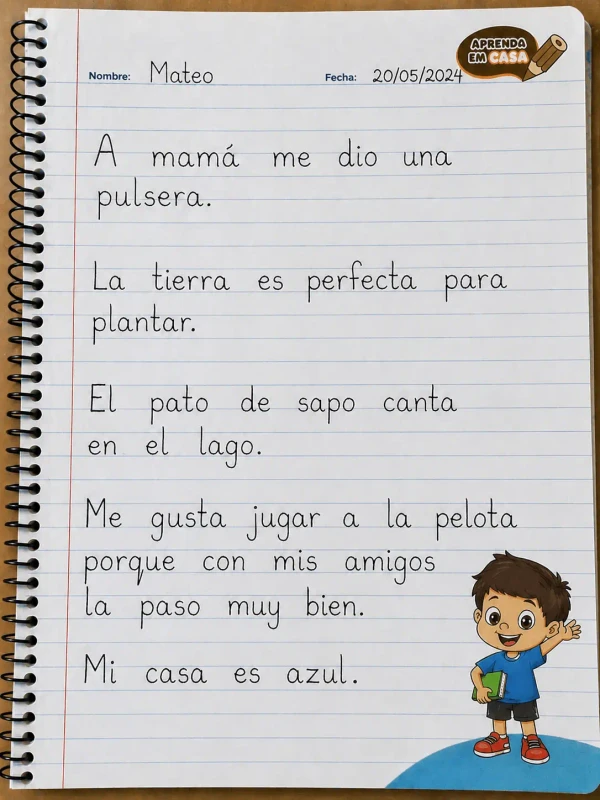 APRENDA
EM CASA
Nombre: Mateo Fecha: 20/05/2024
A mamá me dio una
pulsera.
La tierra es perfecta para
plantar.
El pato de sapo canta
en el lago.
Me gusta jugar a la pelota
porque con mis amigos
la paso muy bien.
Mi casa es azul.